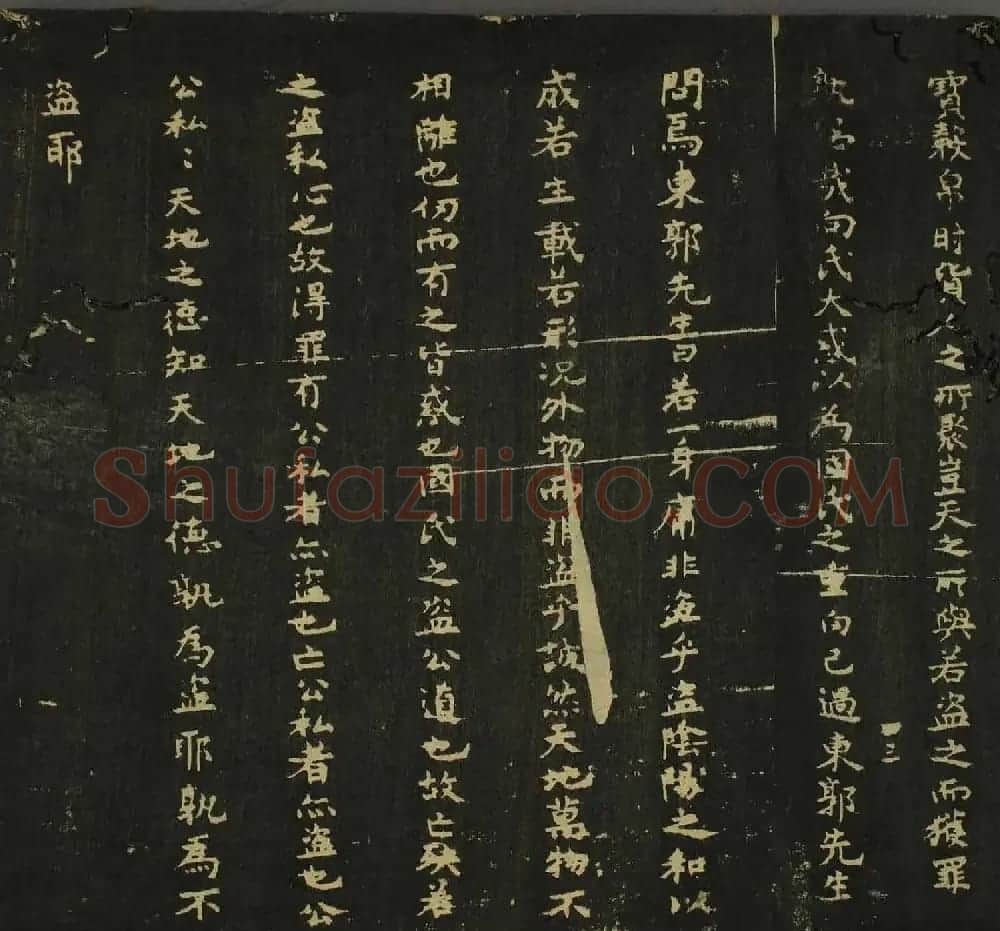 寶穀帛財貨人之所聚豈天之所與若盗之而獲罪
孰哉向氏大惑以為國氏之重向已過東郭先生
問焉東郭先生曰若一身庸非盗乎盗陰陽之和以
成若生載若形況外物而非盗乎誠然天地萬物不
相離也仞而有之皆惑也國氏之盗公道也故亡殃若
之盗私心也故得罪有公私者亦盗也亡公私者亦盗也公
公私〻天地之德知天地之德孰為盗耶孰為不
盗耶
Shufaziliao.COM